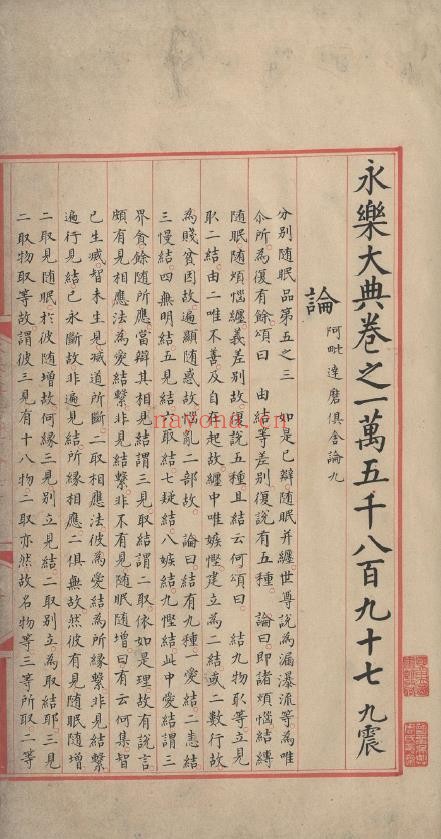 永樂大典卷之一萬五千八百九十七 九震
論 阿毗達磨俱舍論九
分别隨眠品第五之三 如是已辯隨眠并纏世尊說為漏瀑流等為唯
尒所為復有餘頌曰 由結等差別復說有五種 論曰即諸煩惱結縛
隨眠隨煩惱纏義差别故復說五種且結云何頌曰 結九物取等立見
取二結由二唯不善及自在起故纏中唯嫉慳建立為二結或二數行故
為賤貧因故遍顯隨惑故惱亂二部故 論曰結有九種一愛結二恚結
三慢結四無明結五見結六取結七疑結八嫉結九慳結此中愛結謂三
界貪餘隨所應當辯其相見結謂三見取結謂二取依如是理故有說言
頗有見相應法為愛結繫非見結繫非不有見隨眠隨增曰有云何集智
已生滅智未生見滅道所斷二取相應法彼為愛結為所緣繫非見結繫
遍行見結已永斷故非遍見結所緣相應二俱無故然彼有見隨眠隨增
二取見隨眠於彼隨增故何緣三見别立見結二取别立為取結耶三見
二取物取等故謂彼三見有十八物二取亦然故名物等三等所取二等
nayona.cn